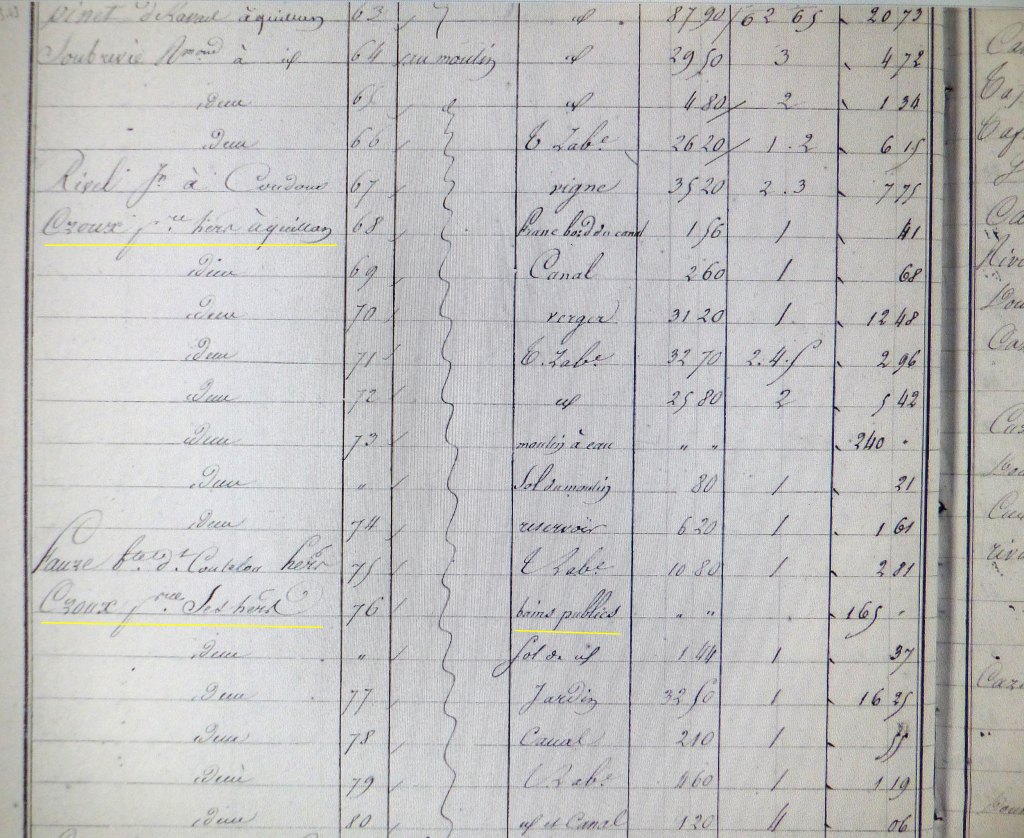 pinet à quillan 63 id 87 90 62 65 20 73
Soubrevie Rmond à id 64 au moulin id 29 50 3 4 72
Dem 65 id 4 80 2 1 34
Dem 66 T. Labe 26 20 1.2 6 15
Rivel Jn à Coudons 67 vigne 35 20 2.3 7 75
Croux pre hers à quillan 68 franc bord du canal 1 56 1 41
Dem 69 Canal 2 60 1 68
Dem 70 verger 31 20 1 12 48
Dem 71 T. Labe 32 70 2.4.5 2 96
Dem 72 id 25 80 2 5 42
Dem 73 moulin à eau " " 240 "
Dem " Sol du moulin 80 1 21
Dem 74 reservoir 6 20 1 1 61
hers 75 T Labe 10 80 1 2 81
Croux pre Ses hers 76 bains publics " " 165 "
Dem " Sol de id 1 44 1 37
Dem 77 Jardin 32 50 1 16 25
Dem 78 Canal 2 10 1 55
Dem 79 T Labe 4 60 1 1 19
Dem 80 id et Canal 1 20 4 06